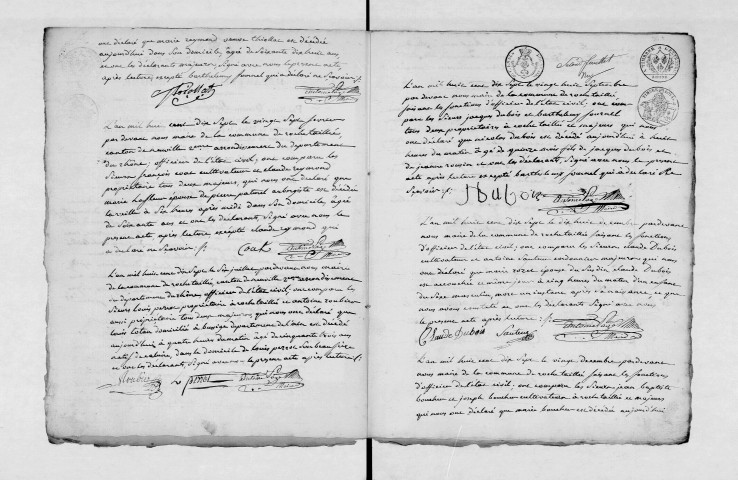 ont déclaré que marie raymond veuve thiollat est décédée
aujourd'hui dans son domicile, âgé de soixante dix huit ans
et ont les déclarants majeurs, signé avec nous le présent acte,
après lecture, excepté barthelemy journal qui a déclaré ne savoir ./.
L'an mil huit cent dix sept le vingt sept février
par devant nous maire de la commune de rochetaillée,
canton de neuville 2eme arrondissement du département
du rhône, officier de l'état civil, ont comparu les
Sieurs françois coat cultivateur et claude raymond
propriétaire tous deux majeurs, qui nous ont déclaré que
marie épouse de pierre paturel est décédée
la veille à six heures après midi dans son domicile, âgé
de soixante ans et ont les déclarants signé avec nous le
présent acte après lecture excepté claude raymond qui
a déclaré ne savoir ./. Coat
L'an mil huit cent dix sept le six juillet pardevant nous maire
de la commune de rochetaillée, canton de neuville 2eme arrondissement
du département du rhône officier de l'état civil; ont comparu les
Sieurs louis perret propriétaire à rochetaillée et antoine roubier
aussi propriétaire tous deux majeurs, qui nous ont déclaré que
domicilié à département de l'ain est décédé
aujourd'hui à quatre heures du matin âgé de cinquante trois ans
dans le domicile de louis perret son beau frère
et ont les déclarants signé avec nous le présent acte après lecture ./.
Roubier perret
L'an mil huit cent dix sept le vingt huit septembre
par devant nous maire de la commune de rochetaillée
faisant les fonctions d'officier de l'état civil, ont com-
paru les Sieurs jacques dubois et barthelemy journal
tous deux propriétaires à rochetaillée et majeurs qui nous
ont déclaré que nicolas dubois est décédé aujourd'hui à huit
heures du matin âgé de quinze mois fils de jacques dubois et
de jeanne et ont les déclarants signé avec nous le présent
acte après lecture excepté barthelemy journal qui a déclaré ne
savoir ./. J Duboi
L'an mil huit cent dix sept le dix huit pardevant
nous maire de la commune de rochetaillée faisant les fonctions
d'officier de l'état civil; ont comparu les Sieurs claude Dubois
cultivateur et antoine Sauteur cordonnier majeurs qui nous
ont déclaré que marie épouse du Susdit claude Dubois
est accouchée ce même jour à cinq heures du matin d'un enfant
du sexe masculin, mort un instant après sa naissance, ce que
nous avons constaté et ont les déclarants signé avec nous
le présent acte après lecture ./.
Claude Dubois Sauteur
L'an mil huit cent dix sept le vingt décembre pardevant
nous maire de la commune de rochetaillée faisant les fonctions
d'officier de l'état civil; ont comparu les Sieurs jean baptiste
boucher et joseph boucher cultivateurs à rochetaillée et majeurs
qui nous ont déclaré que marie boucher est décédée aujourd'hui